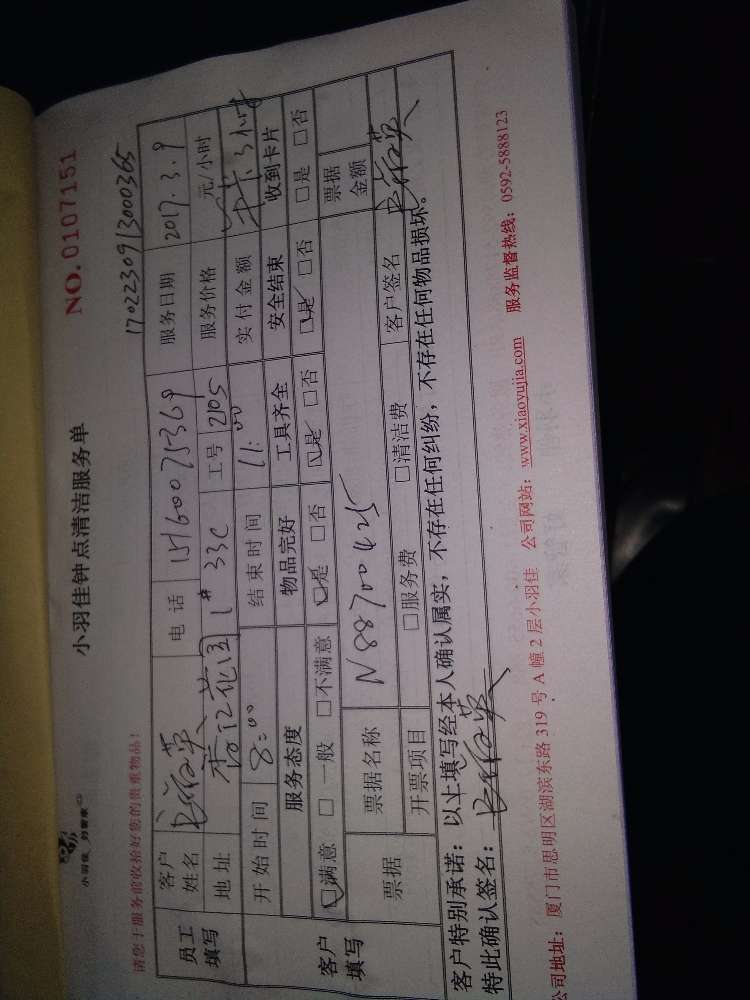 小羽佳 为您家
小羽佳钟点清洁服务单
NO.0107151
请您于服务前收拾好您的贵重物品!
1702230913000365
员工填写 客户姓名 英 电话 服务日期 2017.3.9
地址 花园 1# 33C 工号 2105 服务价格 元/小时
客户填写 开始时间 8:00 结束时间 11:00 实付金额 3小时
服务态度 物品完好 工具齐全 安全结束 收到卡片
□满意 □一般 □不满意 □是 □否 □是 □否 □是 □否 □是 □否
票据 票据名称 N88700425 票据金额
开票项目 □服务费 □清洁费 客户签名 英
客户特别承诺:以上填写经本人确认属实,不存在任何纠纷,不存在任何物品损坏。
特此确认签名: 英
公司地址:厦门市思明区湖滨东路319号A幢2层小羽佳 公司网站:www.xiaoyujia.com 服务监督热线:0592-5888123